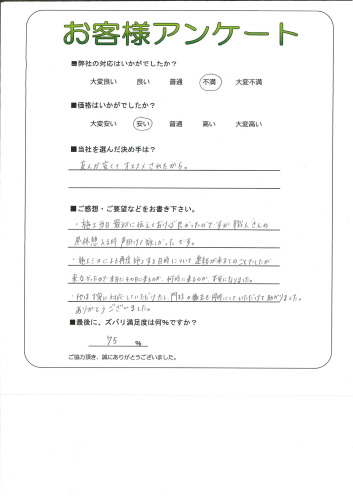 お客様アンケート
■弊社の対応はいかがでしたか？
大変良い 良い 普通 不満 大変不満
■価格はいかがでしたか？
大変安い 安い 普通 高い 大変高い
■当社を選んだ決め手は？
友人が安くてオススメされたから。
■ご感想・ご要望などをお書き下さい。
・施工当日 最初に伝えておけば良かったのですが職人さんの
昼休憩入る時 声掛けて欲しかったです。
・施工ミスによる再度施工する日時について 連絡が来るとのことでしたが
来なかったので本当にその日に来るのか、何時に来るのか、不安になりました。
・他は丁寧に対応していただけたし、門柱の撤去も同時にしていただけて助かりました。
ありがとうございました。
■最後に、ズバリ満足度は何％ですか？
75 ％
ご協力頂き、誠にありがとうございました。